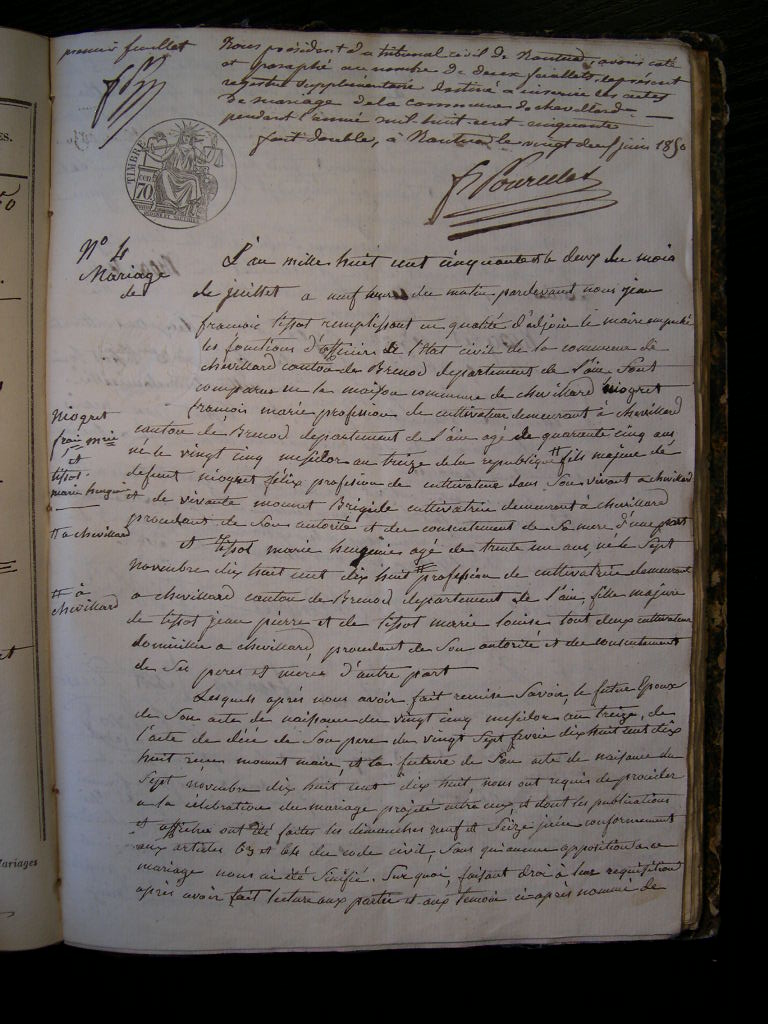 premier feuillet
Nous président du tribunal civil de Nantua, avons coté
et paraphé au nombre de deux feuillets, le présent
registre supplémentaire destiné a inserire les actes
de mariage de la commune de chevillard
pendant l'année mil huit cent cinquante
fait double, à Nantua le vingt deux juin 1850
TIMBRE
70
N° 4
Mariage
de
L'an mille huit cent cinquante et le deux du mois
de juillet a neuf heures du matin pardevant nous jean
francois tissot remplissant en qualité d'adjoin le maire empeché
les fonctions d'officier de l'Etat civil de la commune de
chevillard canton de Brenod departement de l'ain Sont
comparus en la maison commune de chevillard Niogret
francois marie profession de cultivateur demeurant à chevillard
canton de Brenod departement de l'ain agé de quarante cinq ans
né le vingt cinq messidor an treize de la republique # fils majeur de
defunt niogret félix profession de cultivateur dans Son vivant a chevillard
et de vivante monnet Brigide cultivatrice demeurant à chevillard
procedant de Son autorité et du consentement de Sa mere d'une part
et tissot marie heugenie agé de trente un ans, né le Sept
novembre dix huit cent dix huit # profession de cultivatrice demeurant
a chevillard canton de Brenod departement de l'ain, fille majure
de tissot jean pierre et de tissot marie louise tout deux cultivateur
domicilié a chevillard, procedant de Son autorité et du consentement
de Ses peres et meres d'autre part
Niogret
fran. mrie
et
tissot
marie heugenie
# a chevillard
# à
chevillard
Lesquels après nous avoir fait remise Savoir, le futur Epoux
de Son acte de naissance du vingt cinq messidor an treize, de
l'acte de décé de Son pere du vingt Sept fevrie dix huit cent dix
huit monnet maire, et la future de Son acte de naissance du
Sept novembre dix huit cent dix huit, nous ont requis de procéder
a la célébration du mariage projeté entre eux, et dont les publications
et affiches ont été faites les dimanches neuf et Seize juin conformement
aux articles 63 et 64 du code civil, Sans qu'aucune opposition a ce
mariage nous ai été Sinifié. Sur quoi, faisant droi à leur requisition
après avoir fait lecture aux parties et aux temoin ci-après nommé de